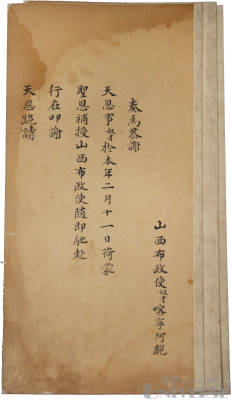 山西布政使奴才喀寧阿跪
奏為恭謝
天恩事奴才於本年二月十一日荷蒙
聖恩補授山西布政使隨即馳赴
行在叩謝
天恩跪請